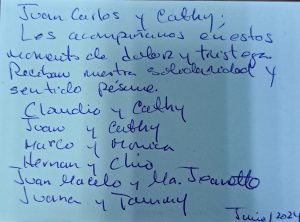 Juan Carlos y Cathy;
Les acompañamos en estos
momentos de dolor y tristeza
Reciban nuestra solidaridad y
sentido pésame.
Claudio y Cathy
Juan y Cathy
Marco y Monica
Hernan y Chio
Juan Marcelo y Ma. Jeanette
Juana y Tommy
Junio/2024